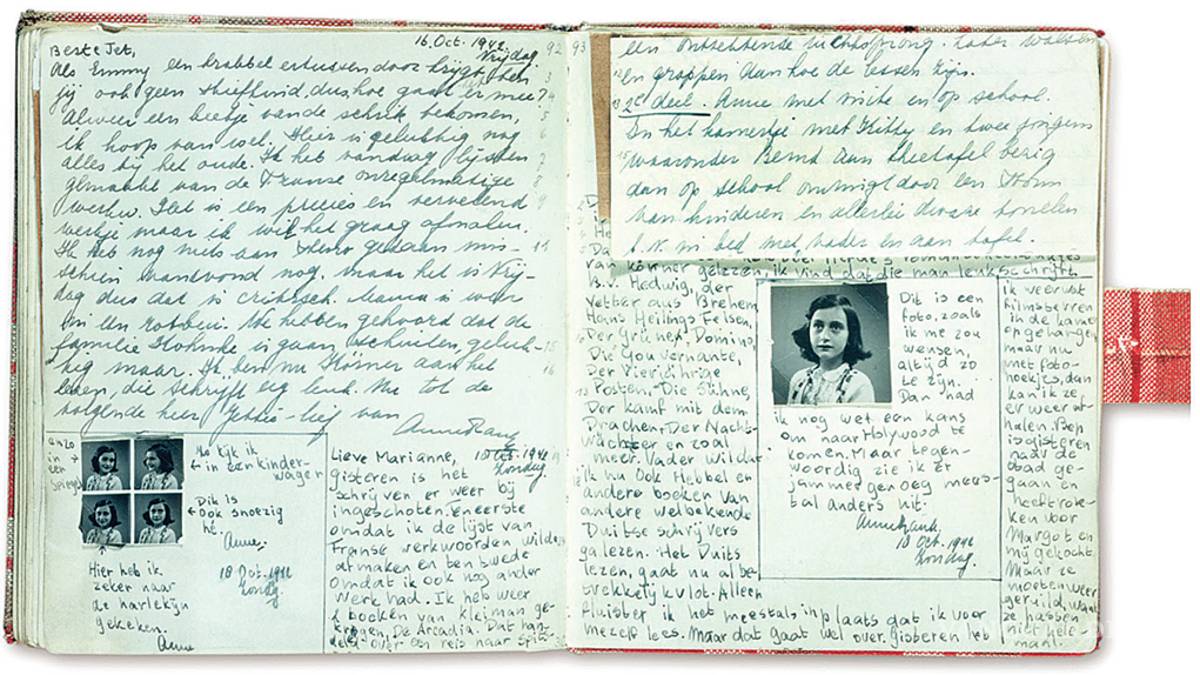 Beste Jet,
16. Oct. 1942.
Vrijdag.
92
Als Emmy een krabbel ertussen door krijgt, ben
jij ook geen stiefkind, dus hoe gaat er mee?
Alweer een beetje van de schrik bekomen,
ik hoop van wel. Hier is gelukkig nog
alles bij het oude. Ik heb vandaag lijsten
gemaakt van de Franse onregelmatige
werkw. Het is een precies en vervelend
werkje maar ik wil het graag afmaken.
Ik heb nog niets aan steno gedaan mis-
schien vanavond nog. maar het is Vrij-
dag dus dat is critisch. Mama is weer
We hebben gehoord dat de
familie is gaan schuilen, geluk-
kig maar. Ik ben nu Körner aan het
lezen, die schrijft erg leuk. Nu tot de
volgende keer Jetje-lief van
Anne Frank
anzo
in
een
Spiegel
Ho kijk ik
in een kinder-
wagen
Dit is
ook snoezig
hé.
Anne.
Hier heb ik
zeker naar
de harlekijn
gekeken.
Anne
18 Oct. 1942
Zondag.
Lieve Marianne,
18 Oct. 1942
Zondag.
Gisteren is het
schrijven er weer bij
ingeschoten. Ten eerste
omdat ik de lijst van
Franse werkwoorden wilde
afmaken en ten twede
omdat ik ook nog ander
werk had. Ik heb weer
2 boeken van Kleiman ge-
kregen, De Arcadia. Dat han-
deld over een reis naar Spits-
93
een ontzettende luchtsprong. Later walsen
en grappen aan hoe de lessen zijn.
2e deel. Anne met visite en op school.
In het kamertje met Kitty en twee jongens
waaronder Bernd aan theetafel bezig
dan op school omringd door een stroom
van kinderen en allerlei dwaze tonelen
b.v. in bed met vader en aan tafel.
Körner gelezen, ik vind dat die man leuk schrijft.
B.v. Hedwig, der
Vetter aus Bremen
Hans Heilings Felsen,
Der Grüne Domino,
Die Gouvernante,
Der Vierjährige
Posten, Die Sühne,
Der Kampf mit dem
Drachen, Der Nacht-
wächter en zoal
meer. Vader wil dat
ik nu ook Hebbel en
andere boeken van
andere welbekende
Duitse schrijvers
ga lezen. Het Duits
lezen, gaat nu al be-
trekkelijk vlot. Alleen
fluister ik het meestal inplaats dat ik voor
mezelf lees. Maar dat gaat wel over. Gisteren heb
Dit is een
foto, zoals
ik me zou
wensen,
altijd zo
te zijn.
Dan had
ik nog wel een kans
om naar Holywood te
komen. Maar tegen-
woordig zie ik er
jammer genoeg mees-
tal anders uit.
Anne Frank.
18 Oct. 1942
Zondag.
ik veer
filmsterren
in de kamer
opgehangen
maar nu
met foto-
hoekjes, dan
kan ik ze
er weer af-
halen. Bep
is gisteren
naar de
stad ge-
gaan en
heeft rok-
ken voor
Margot en
mij gekocht.
Maar ze
moeten weer
geruild, want
ze passen
niet hele-
maal.